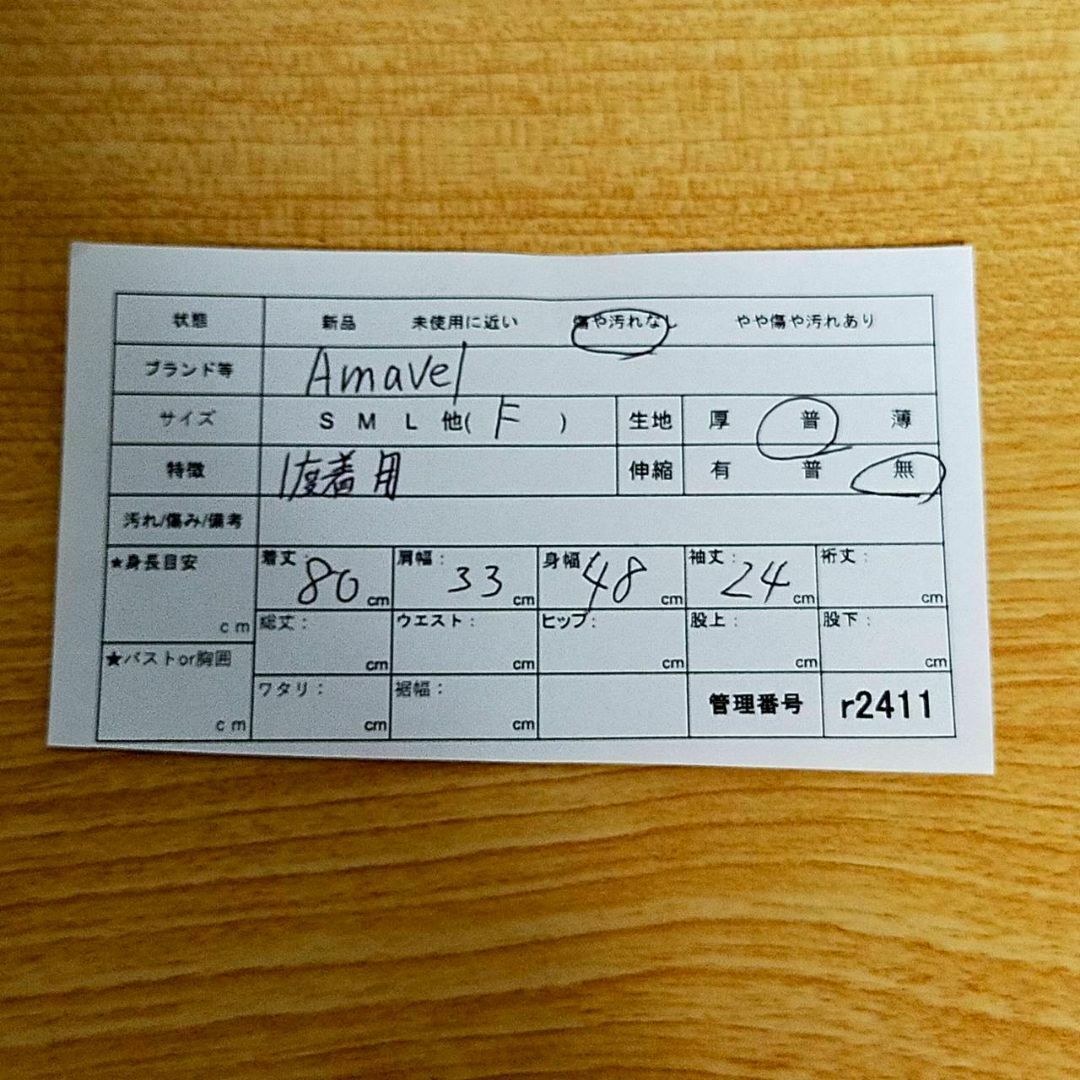 状態 新品 未使用に近い 傷や汚れなし やや傷や汚れあり
ブランド等 Amavel
サイズ S M L 他( F ) 生地 厚 普 薄
特徴 1度着用 伸縮 有 普 無
汚れ/傷み/備考
★身長目安 cm 着丈: 80 cm 肩幅: 33 cm 身幅: 48 cm 袖丈: 24 cm 裄丈: cm
総丈: cm ウエスト: cm ヒップ: cm 股上: cm 股下: cm
★バストor胸囲 cm ワタリ: cm 裾幅: cm 管理番号 r2411